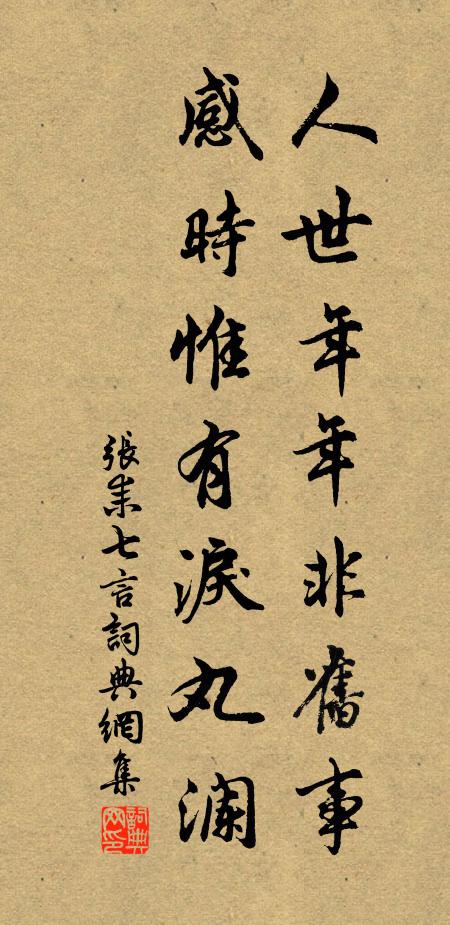 人世年年非舊事
感時惟有淚丸瀾
張耒七言詞典網集
詞典網印